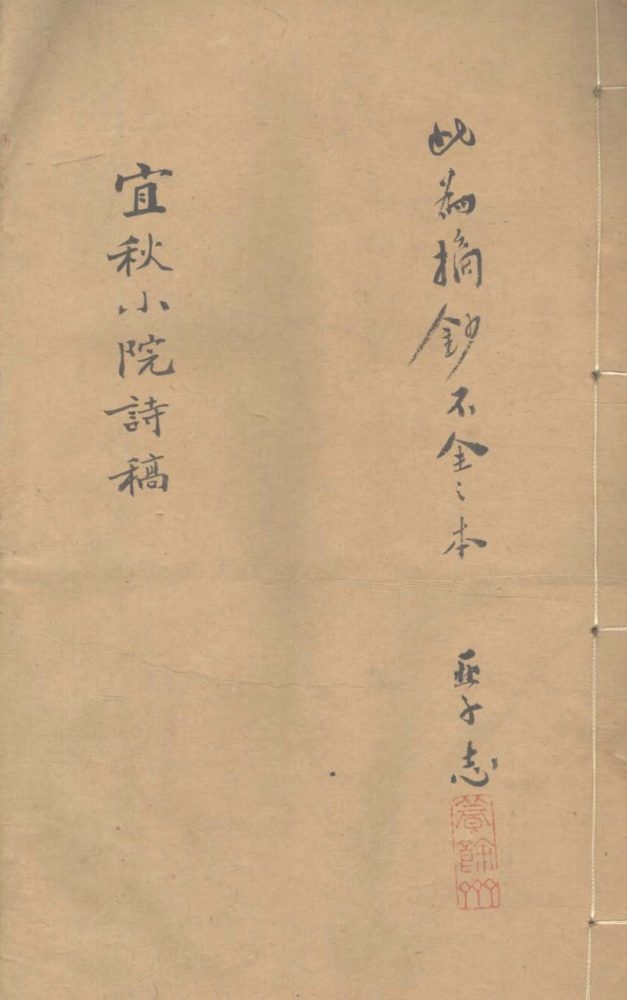 此為摘鈔不全之本
亞子志
宜秋小院詩稿